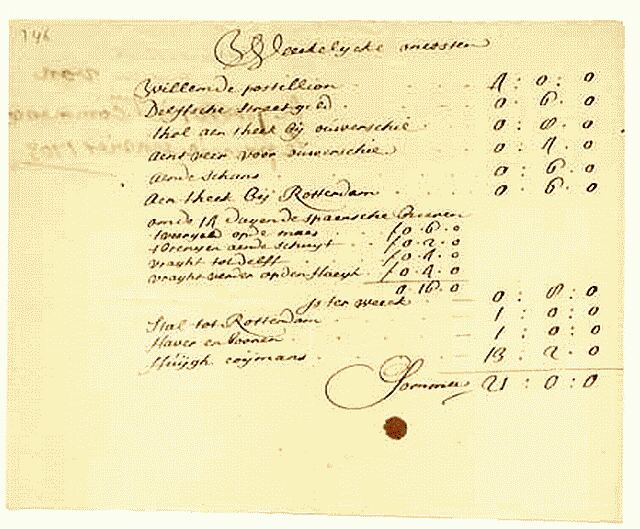 146
Weekelycke oncosten
Willem de postillion 4 : 0 : 0
Delfsche straetgelt 0 . 6 . 0
thol aen theck bij ouwerschie 0 : 8 . 0
aent veer voor ouwerschie 0 . 4 . 0
aende schans 0 . 6 . 0
aen theck bij Rotterdam 0 . 6 . 0
omde 14 dagen de spaensche brieven
opde maes f 0 . 6 . 0
aende schuyt f 0 . 2 . 0
vraght tot delft f 0 . 4 . 0
vraght verder op den Haegh f 0 . 4 . 0
0 . 16 . 0
is ter weeck 0 : 8 : 0
Stal tot Rotterdam 1 : 0 : 0
Haver en boonen 1 : 0 : 0
Huijgh 13 . 2 . 0
Somma 21 : 0 : 0